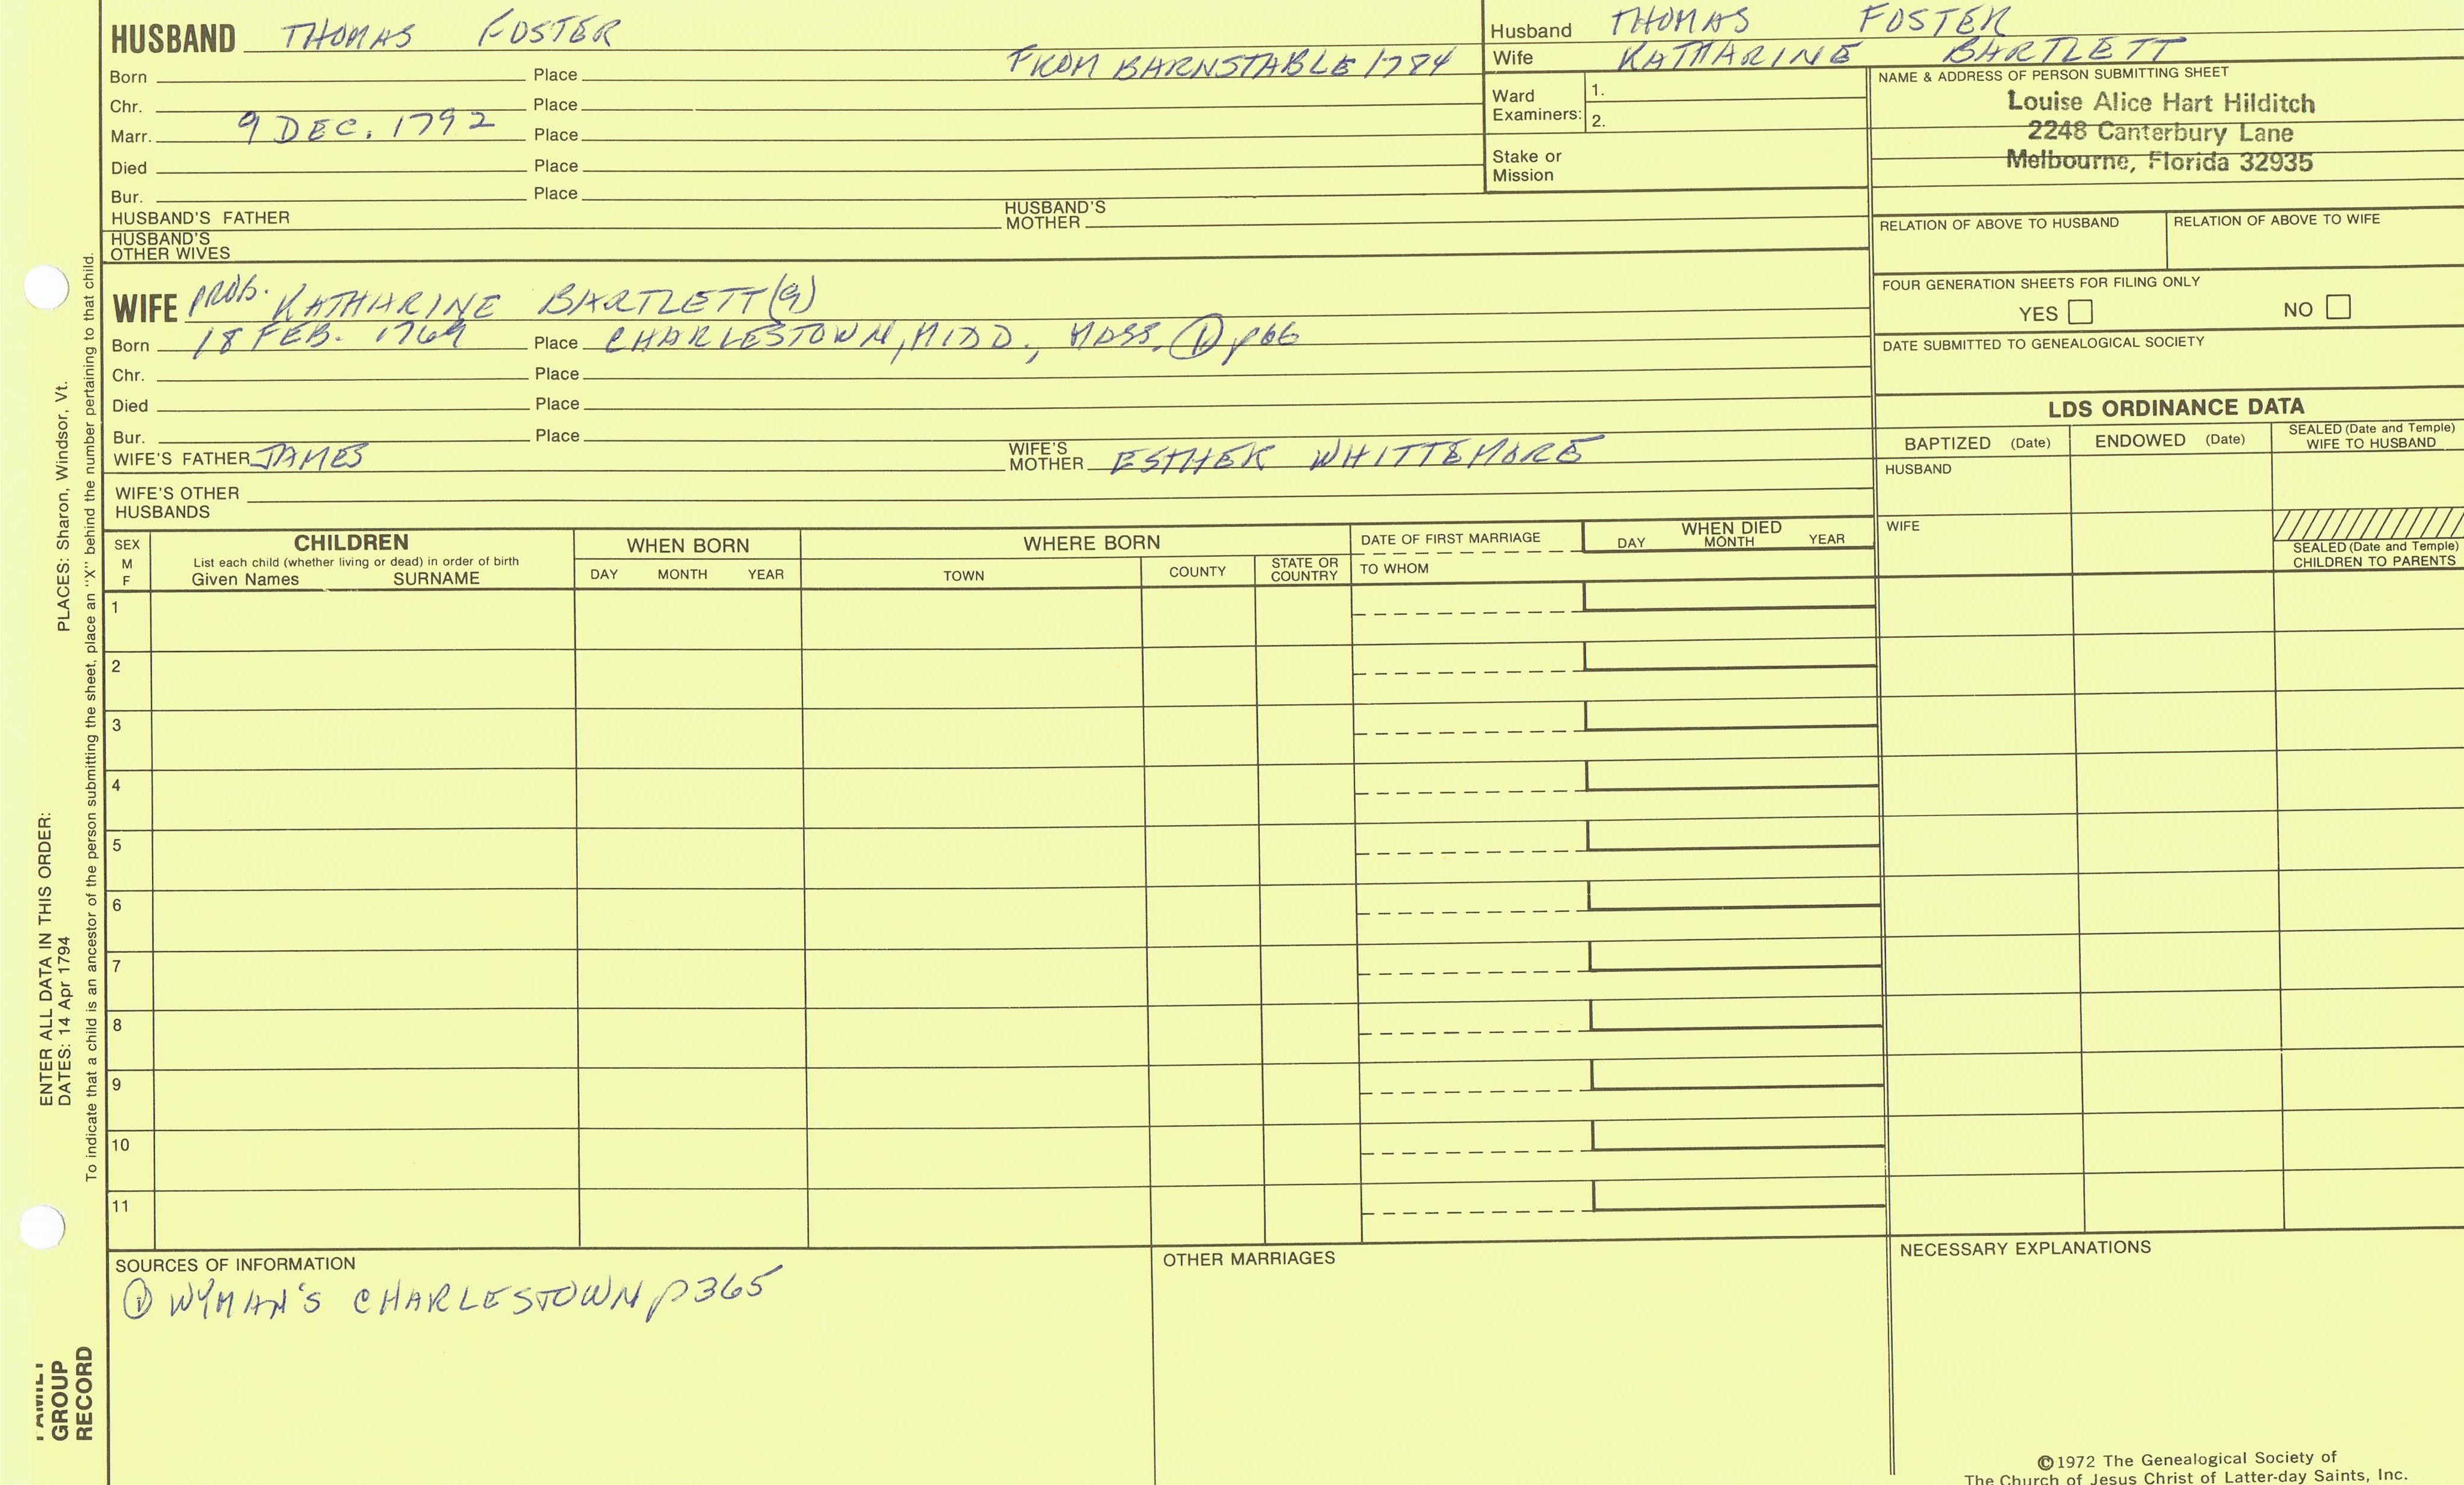 HUSBAND THOMAS FOSTER
FROM BARNSTABLE 1784
Born Place
Chr. Place
Marr. 9 DEC. 1792 Place
Died Place
Bur. Place
HUSBAND'S FATHER HUSBAND'S MOTHER
HUSBAND'S OTHER WIVES
WIFE PROB. KATHARINE BARTLETT (9)
Born 18 FEB. 1769 Place CHARLESTOWN, MIDD., MASS. ① p66
Chr. Place
Died Place
Bur. Place
WIFE'S FATHER JAMES WIFE'S MOTHER ESTHER WHITTEMORE
WIFE'S OTHER HUSBANDS
Husband THOMAS FOSTER
Wife KATHARINE BARTLETT
Ward Examiners: 1.
2.
Stake or Mission
NAME & ADDRESS OF PERSON SUBMITTING SHEET
Louise Alice Hart Hilditch
2248 Canterbury Lane
Melbourne, Florida 32935
RELATION OF ABOVE TO HUSBAND RELATION OF ABOVE TO WIFE
FOUR GENERATION SHEETS FOR FILING ONLY
YES NO
DATE SUBMITTED TO GENEALOGICAL SOCIETY
LDS ORDINANCE DATA
BAPTIZED (Date) ENDOWED (Date) SEALED (Date and Temple) WIFE TO HUSBAND
HUSBAND
WIFE
SEALED (Date and Temple) CHILDREN TO PARENTS
SEX M F
CHILDREN
List each child (whether living or dead) in order of birth
Given Names SURNAME
WHEN BORN
DAY MONTH YEAR
WHERE BORN
TOWN COUNTY STATE OR COUNTRY
DATE OF FIRST MARRIAGE
TO WHOM
WHEN DIED
DAY MONTH YEAR
1
2
3
4
5
6
7
8
9
10
11
SOURCES OF INFORMATION
① WYMAN'S CHARLESTOWN p365
OTHER MARRIAGES
NECESSARY EXPLANATIONS
©1972 The Genealogical Society of
The Church of Jesus Christ of Latter-day Saints, Inc.
FAMILY
GROUP
RECORD
ENTER ALL DATA IN THIS ORDER:
DATES: 14 Apr 1794 PLACES: Sharon, Windsor, Vt.
To indicate that a child is an ancestor of the person submitting the sheet, place an "X" behind the number pertaining to that child.